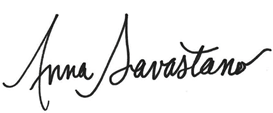 Anna Savastano